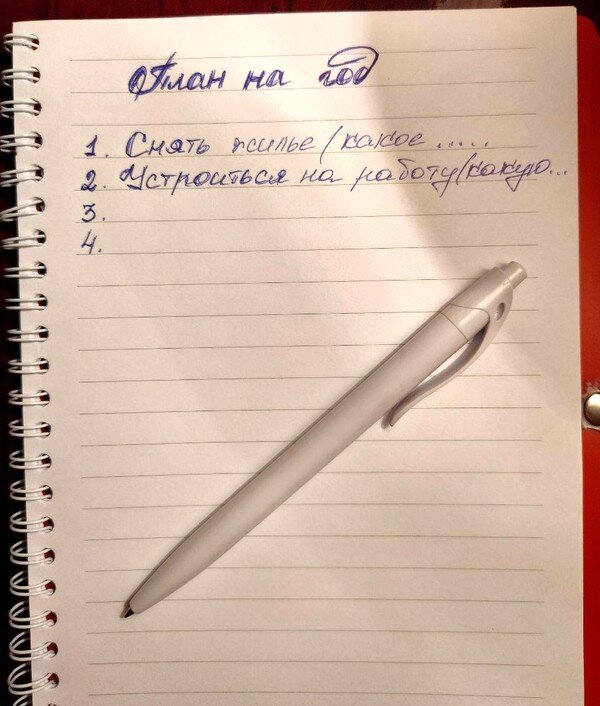 План на год
1. Снять жилье (какое .....
2. Устроиться на работу (какую...
3.
4.